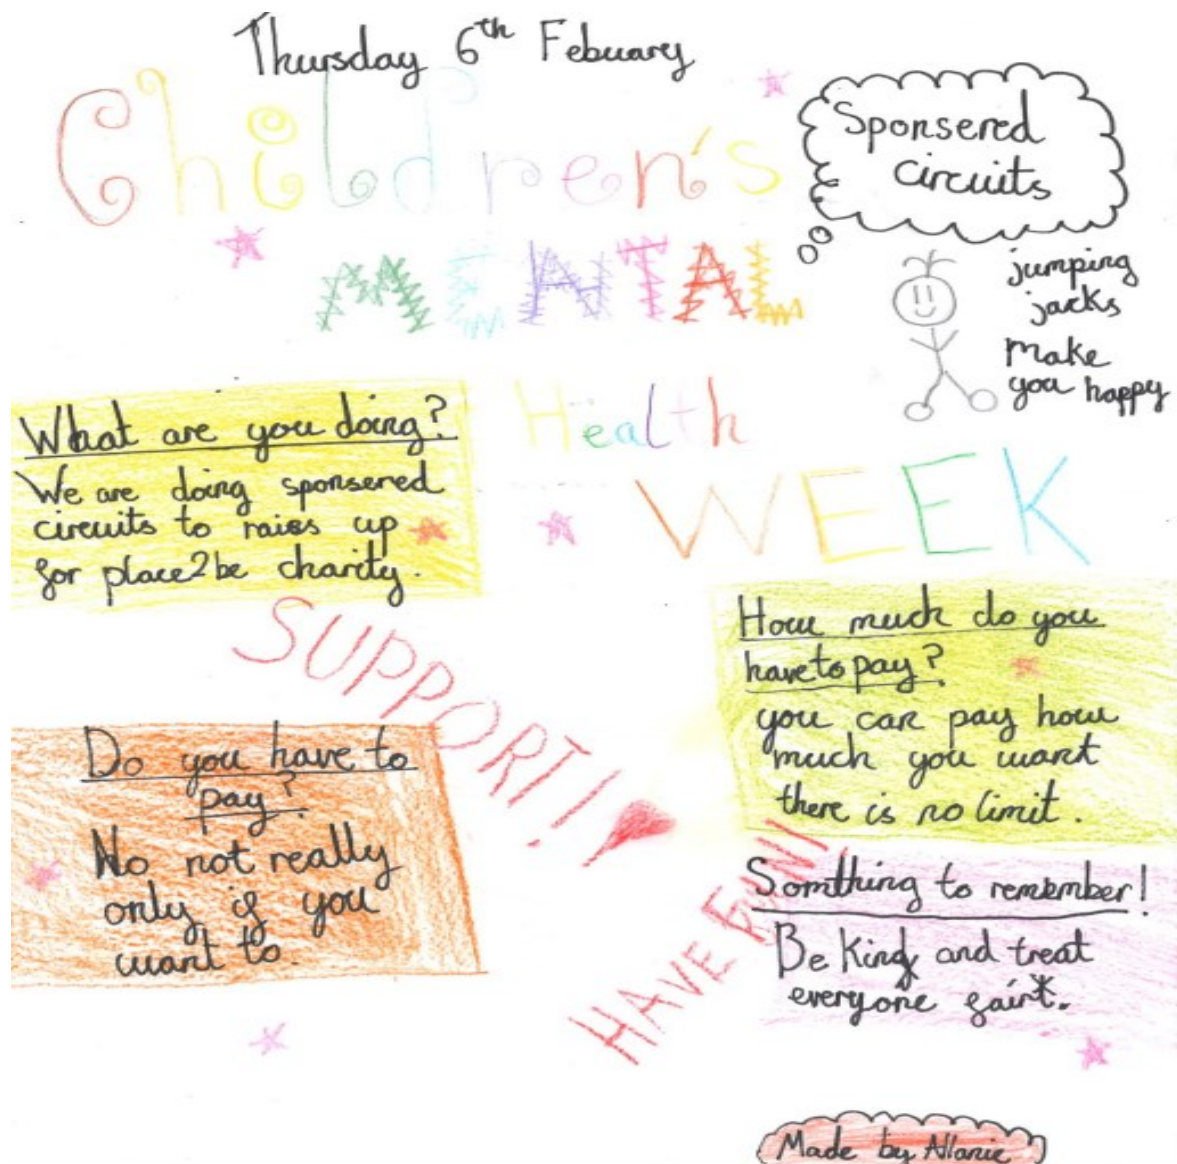 Thursday 6th Febuary
Children's
MENTAL
Health
WEEK
Sponsered
circuits
jumping
jacks
make
you happy
What are you doing?
We are doing sponsered
circuits to raise up
for place2be charity.
SUPPORT!
How much do you
have to pay?
you can pay how
much you want
there is no limit.
Do you have to
pay?
No not really
only if you
want to.
HAVE FUN!
Somthing to remember!
Be Kind and treat
everyone fair.
Made by